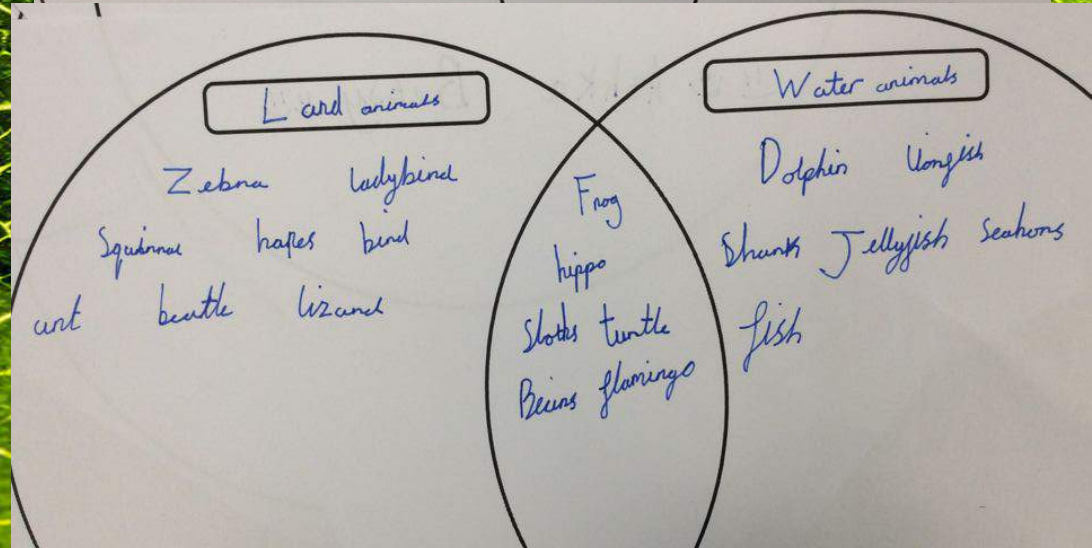 Land animals
Zebra ladybird
Squirral bird
ant beatle lizard
Frog
hippo
Sloths turtle
Bears flamingo
Water animals
Dolphin lionfish
Sharks Jellyfish Seahors
fish